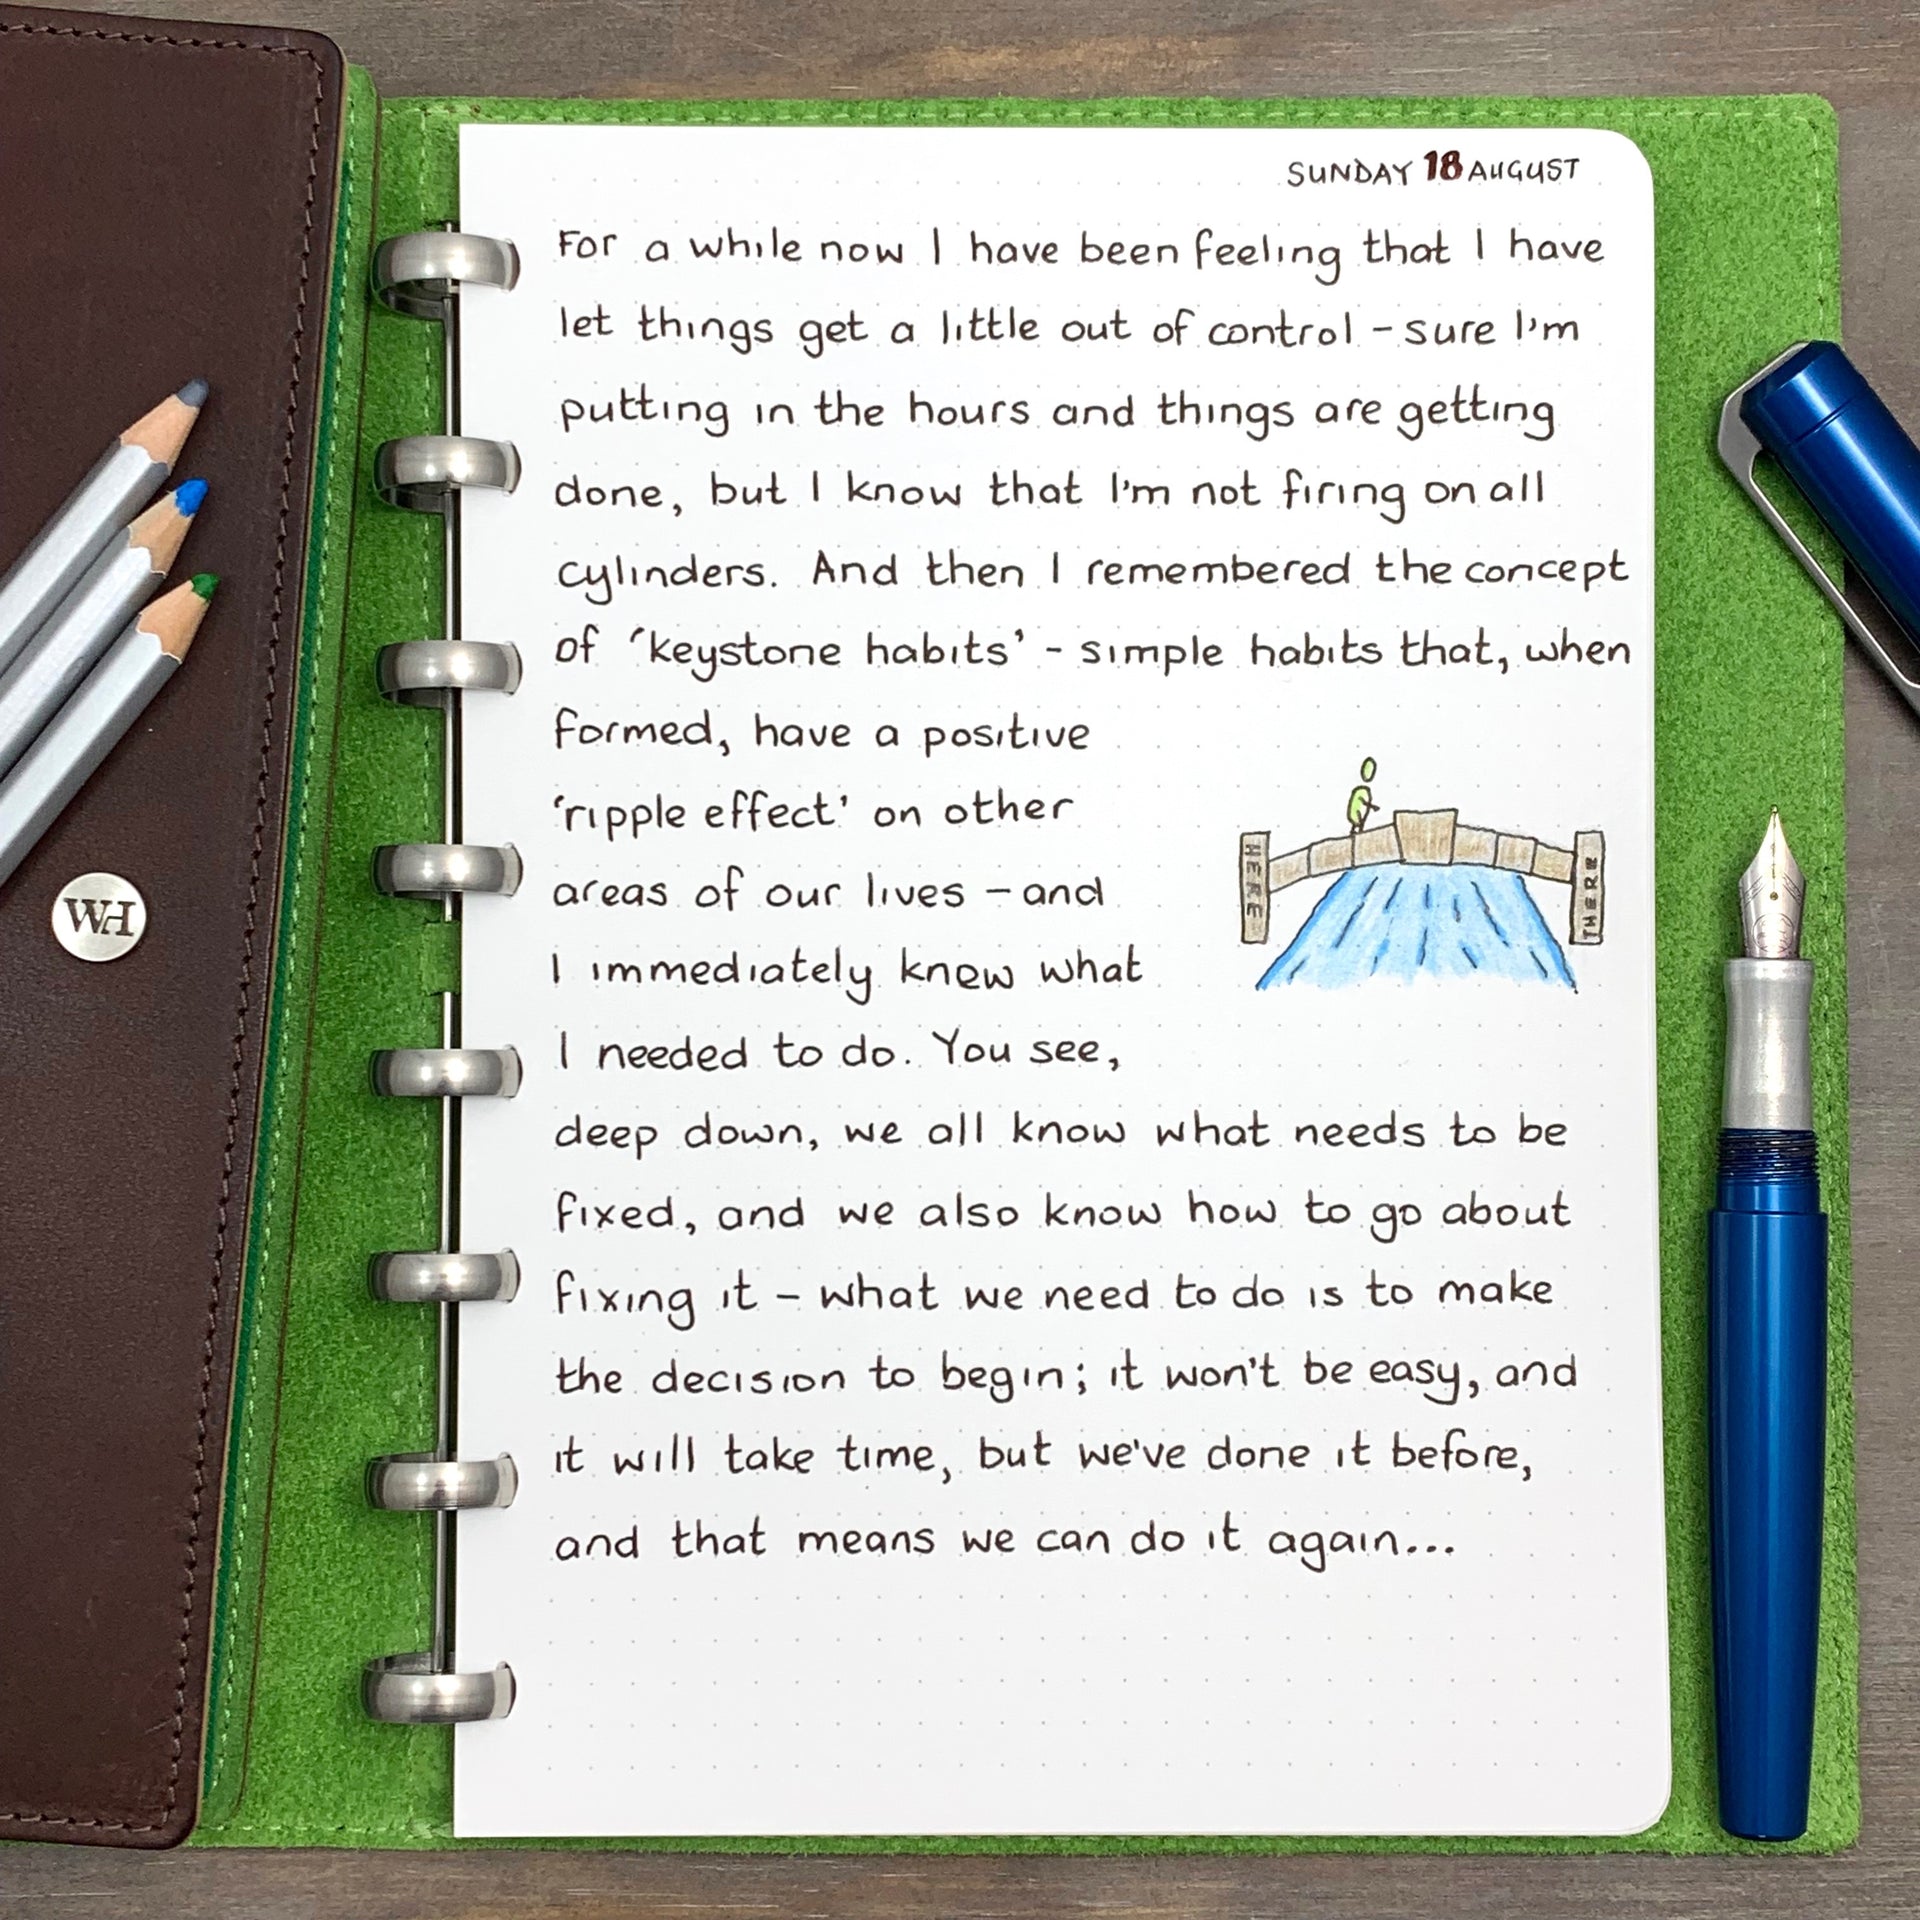 SUNDAY 18 AUGUST
For a while now I have been feeling that I have
let things get a little out of control – sure I'm
putting in the hours and things are getting
done, but I know that I'm not firing on all
cylinders. And then I remembered the concept
of 'keystone habits' - simple habits that, when
formed, have a positive
'ripple effect' on other
areas of our lives – and
I immediately knew what
I needed to do. You see,
deep down, we all know what needs to be
fixed, and we also know how to go about
fixing it – what we need to do is to make
the decision to begin; it won't be easy, and
it will take time, but we've done it before,
and that means we can do it again...
HERE
THERE
WH